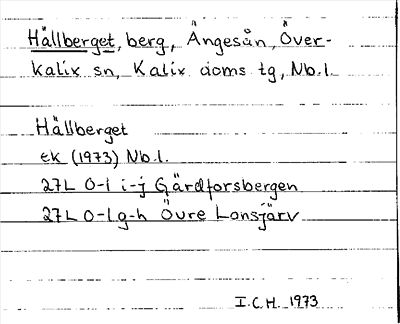 Hällberget, berg, Ängesån, Över-
kalix sn, Kalix doms tg, Nb.l.
Hällberget
ek (1973) Nb.l.
27L 0-1 i-j Gärdforsbergen
27L 0-1 g-h Övre Lansjärv
I.C.H. 1973